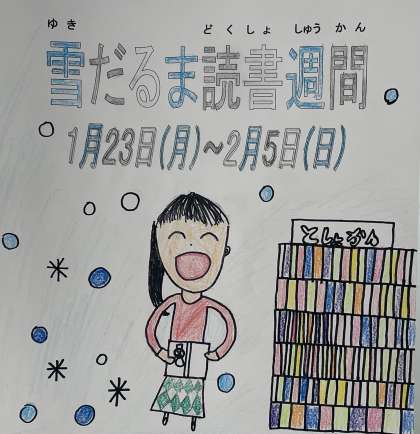 ゆき どくしょ しゅうかん
雪だるま読書週間
1月23日(月)~2月5日(日)
としょかん